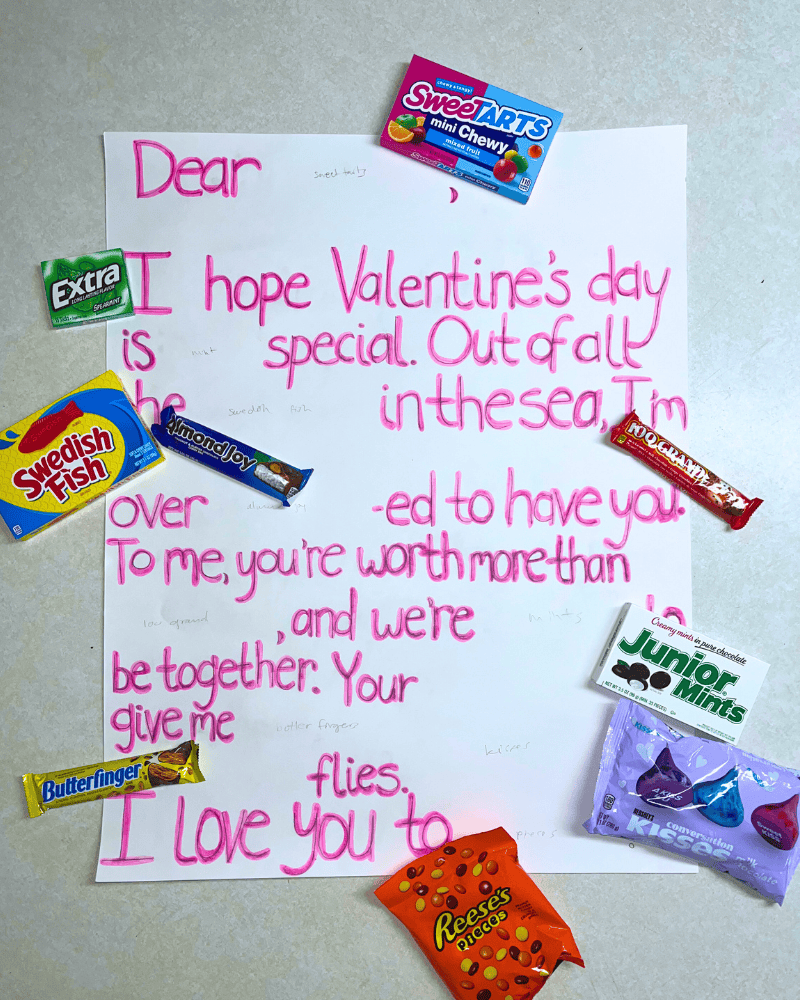 chewy & tangy!
SweeTARTS
mini Chewy
mixed fruit
Dear ,
Extra
LONG LASTING FLAVOR
SPEARMINT
I hope Valentine's day
is special. Out of all
Swedish fish
in the sea, I'm
Swedish
Fish
Almond Joy
100 GRAND
over -ed to have you.
To me, you're worth more than
, and we're mints to
Creamy mints in pure chocolate
Junior
Mints
be together. Your
kisses
give me butter finger
flies.
Butterfinger
KISSES
HERSHEY'S
Kisses
conversation
I love you to
pieces
Reese's
PIECES